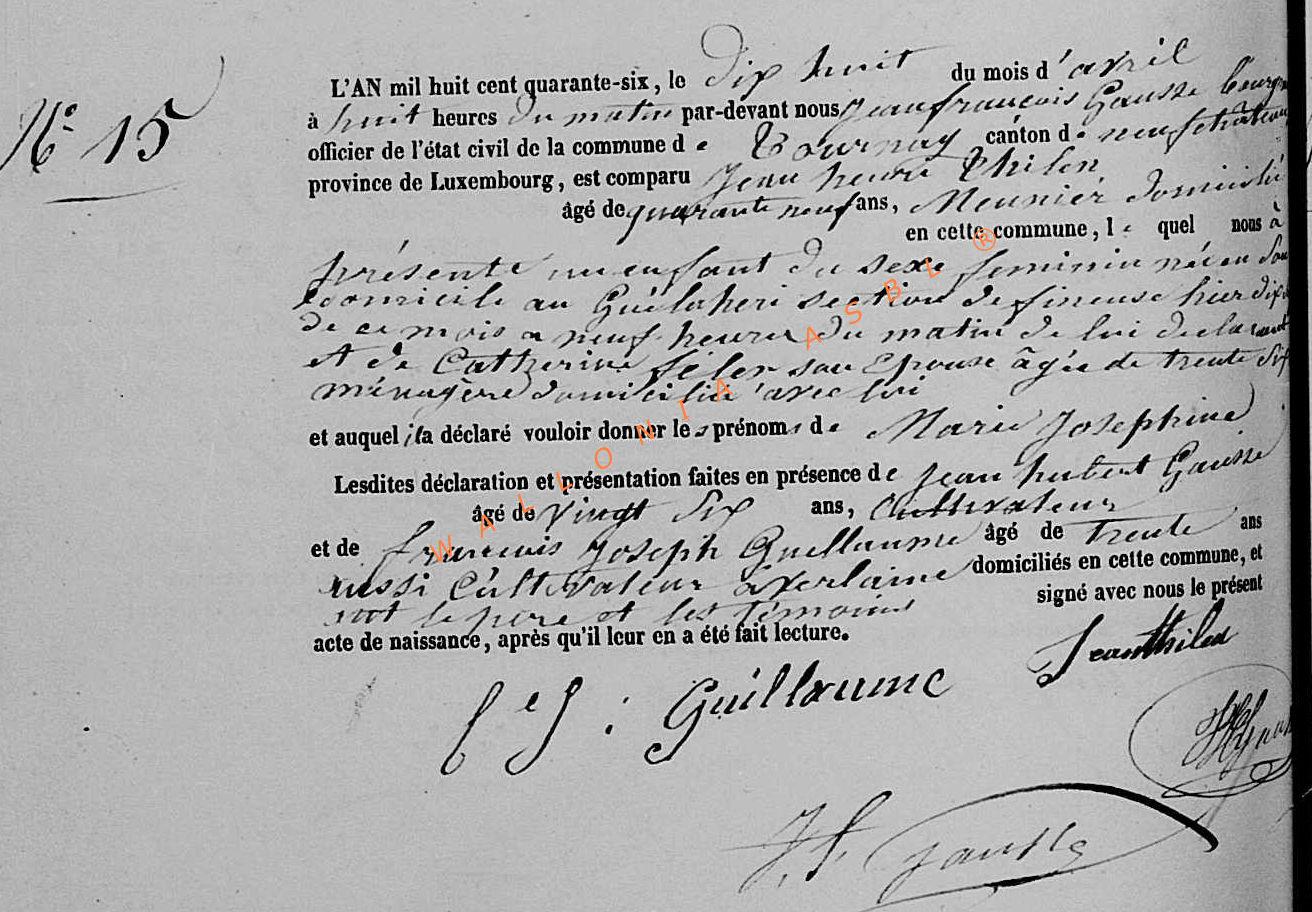 N° 15
L'AN mil huit cent quarante-six, le dix huit du mois d'avril
à huit heures du matin par-devant nous Jean françois Gausse bourgm
officier de l'état civil de la commune de Tournay canton de neufchateau
province de Luxembourg, est comparu Jean henri Thilen
âgé de quarante neuf ans, Meunier domicilié
en cette commune, le quel nous à
présenté un enfant du sexe feminin née en son
domicile au section de fineuse hier dix
de ce mois a neuf heures du matin de lui declarant
et de Catherine féler son Epouse âgée de trente six
ménagère domicilié avec lui
et auquel il a déclaré vouloir donner les prénoms de Marie Josephine
Lesdites déclaration et présentation faites en présence de Jean hubert Gausse
âgé de vingt six ans, Cultivateur
et de françois Joseph Guillaume âgé de trente ans
aussi Cultivateur a verlaine domiciliés en cette commune, et
ont le pere et les témoins signé avec nous le présent
acte de naissance, après qu'il leur en a été fait lecture.
Jean thilen
f e J : Guillaume
J f Gausse
WALLONIA ASBL ®